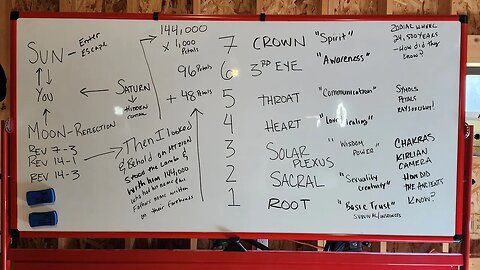 SUN - Enter
Escape
You
MOON - REFLECTION
REV 7-3
REV 14-1
REV 14-3
SATURN
HIDDEN
144,000
x 1,000
Petals
96 Petals
+ 48 Petals
Then I looked
& Behold on Mt Zion
Stood the Lamb &
with him 144,000
who had his name & his
Fathers name written
on their foreheads
7 CROWN "Spirit"
6 3RD EYE "Awareness"
5 THROAT "Communication"
4 HEART "Love, Healing"
3 SOLAR PLEXUS "WISDOM POWER"
2 SACRAL "Sexuality Creativity"
1 ROOT "Basic Trust"
ZODIAC WHEEL
YEARS
- How did they
know?
PETALS
CHAKRAS
KIRLIAN
CAMERA
HOW DID
THE ANCIENTS
KNOW?